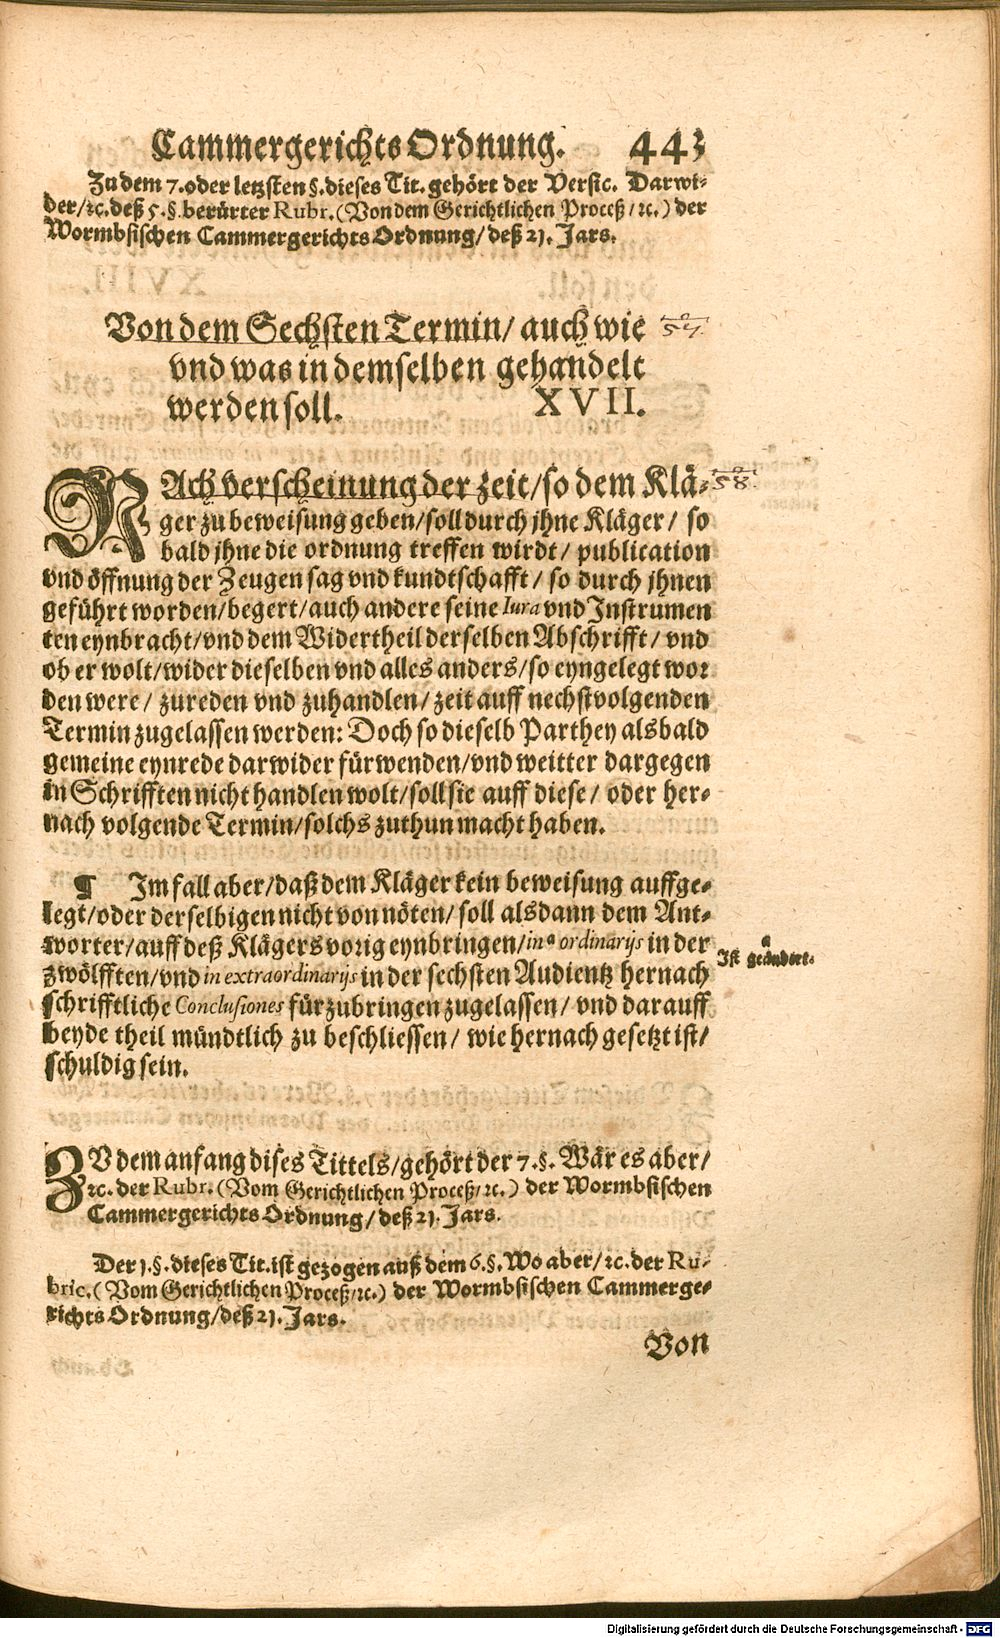 Cammergerichts Ordnung. 443
Zu dem 7. oder letzsten §. dieses Tit. gehört der Versic. Darwi-
der/ ꝛc. deß 5. §. berürter Rubr. (Von dem Gerichtlichen Proceß/ ꝛc.) der
Wormbsischen Cammergerichts Ordnung/ deß 21. Jars.
Von dem Sechsten Termin/ auch wie
57.
vnd was in demselben gehandelt
werden soll. XVII.
NAch verscheinung der zeit/ so dem Klä-
58.
ger zu beweisung geben/ soll durch jhne Kläger/ so
bald jhne die ordnung treffen wirdt/ publication
vnd öffnung der Zeugen sag vnd kundtschafft/ so durch jhnen
geführt worden/ begert/ auch andere seine Iura vnd Instrumen
ten eynbracht/ vnd dem Widertheil derselben Abschrifft/ vnd
ob er wolt/ wider dieselben vnd alles anders/ so eyngelegt wor
den were/ zureden vnd zuhandlen/ zeit auff nechstvolgenden
Termin zugelassen werden: Doch so dieselb Parthey alsbald
gemeine eynrede darwider fürwenden/ vnd weitter dargegen
in Schrifften nicht handlen wolt/ soll sie auff diese/ oder her-
nach volgende Termin/ solchs zuthun macht haben.
¶ Im fall aber/ daß dem Kläger kein beweisung auffge-
legt/ oder derselbigen nicht von nöten/ soll alsdann dem Ant-
worter/ auff deß Klägers vorig eynbringen/ in a ordinarijs in der
a
Ist geändert.
zwölfften/ vnd in extraordinarijs in der sechsten Audientz hernach
schrifftliche Conclusiones fürzubringen zugelassen/ vnd darauff
beyde theil mündtlich zu beschliessen/ wie hernach gesetzt ist/
schuldig sein.
ZV dem anfang dises Tittels/ gehört der 7. §. Wär es aber/
ꝛc. der Rubr. (Vom Gerichtlichen Proceß/ ꝛc.) der Wormbsischen
Cammergerichts Ordnung/ deß 21. Jars.
Der 1. §. dieses Tit. ist gezogen auß dem 6. §. Wo aber/ ꝛc. der Ru-
bric. (Vom Gerichtlichen Proceß/ ꝛc.) der Wormbsischen Cammerge-
richts Ordnung/ deß 21. Jars.
Von
Digitalisierung gefördert durch die Deutsche Forschungsgemeinschaft - DFG